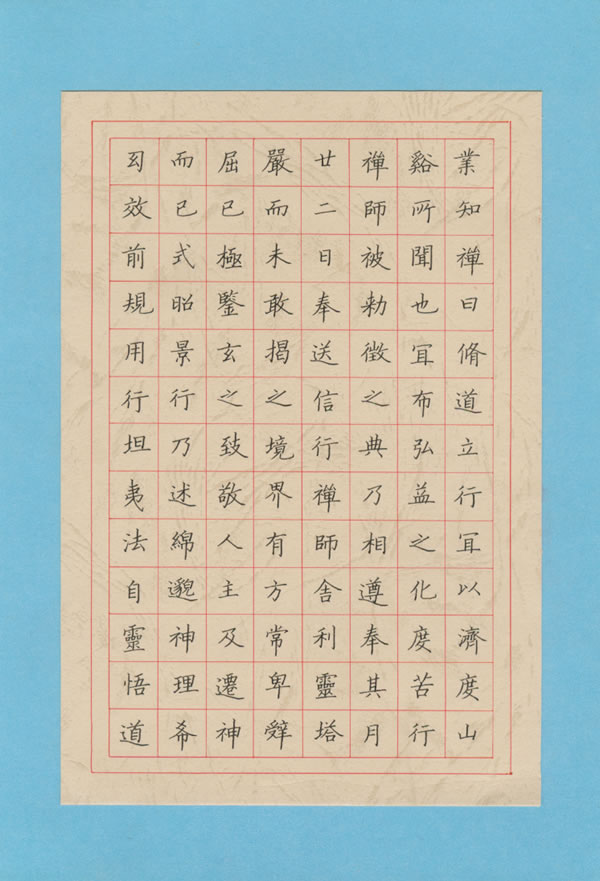 業知禪曰脩道立行冝以濟度山
谿所聞也冝布弘益之化度苦行
禪師被勑徵之典乃相遵奉其月
廿二日奉送信行禪師舍利靈塔
嚴而未敢揭之境界有方常卑辤
屈已極鑒玄之致敬人主及遷神
而已式昭景行乃述綿邈神理希
效前規用行坦夷法自靈悟道